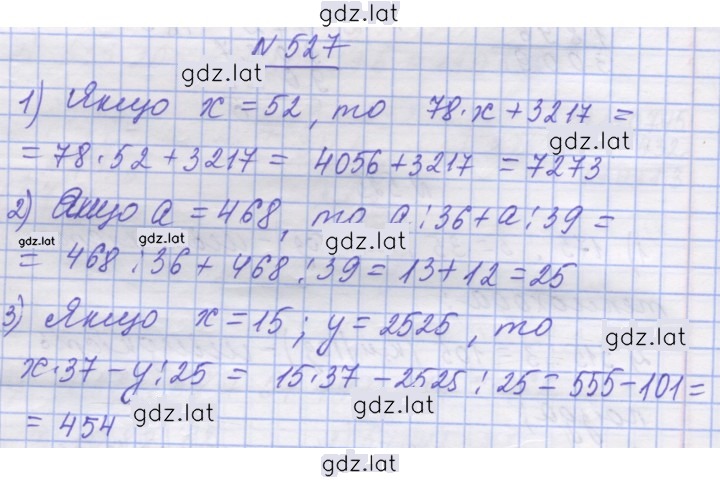 gdz.lat
N 527
gdz.lat
1) Якщо x = 52, то 78·x + 3217 =
gdz.lat
= 78·52 + 3217 = 4056 + 3217 = 7273
2) Якщо a = 468, то a:36 + a:39 =
gdz.lat gdz.lat gdz.lat
= 468:36 + 468:39 = 13 + 12 = 25
3) Якщо x = 15; y = 2525, то
gdz.lat
x·37 - y:25 = 15·37 - 2525:25 = 555 - 101 =
gdz.lat gdz.lat
= 454
gdz.lat